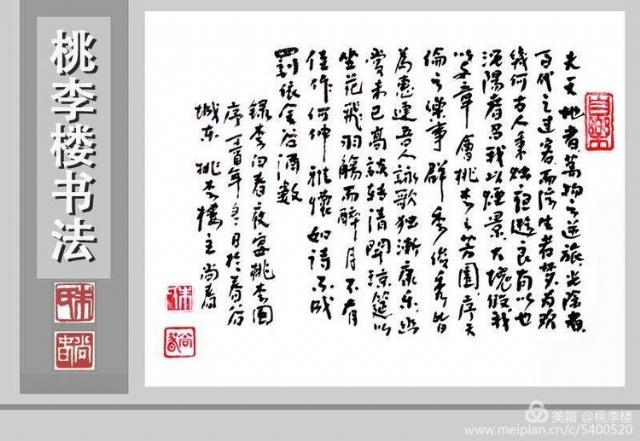 桃李楼书法
夫天地者萬物之逆旅光陰者
百代之過客而浮生若梦为欢
幾何古人秉烛夜遊良有以也
况陽春召我以煙景大塊假我
以文章會桃李之芳園序天
倫之樂事群季俊秀皆
為惠連吾人詠歌独漸康乐幽
赏未已高談转清開琼筵以
坐花飛羽觴而醉月不有
佳作何伸雅懷如詩不成
罰依金谷酒數
録李白春夜宴桃李園
序丁酉年冬月於春谷
城东桃李樓主尚春
美篇 @桃李楼
www.meipian.cn/c/5400520